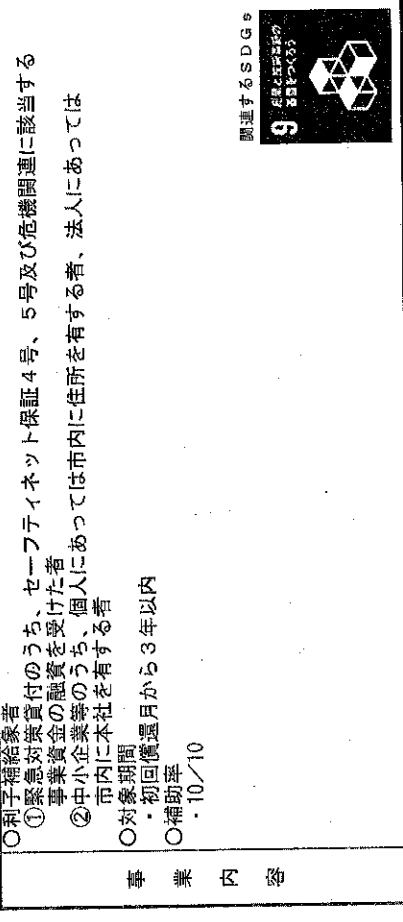 事業内容
○利子補給象者
①緊急対策貸付のうち、セーフティネット保証4号、5号及び危機関連に該当する
事業資金の融資を受けた者
②中小企業等のうち、個人にあっては市内に住所を有する者、法人にあっては
市内に本社を有する者
○対象期間
・初回償還月から3年以内
○補助率
・10/10
関連するSDGs
9 産業と技術革新の
基盤をつくろう